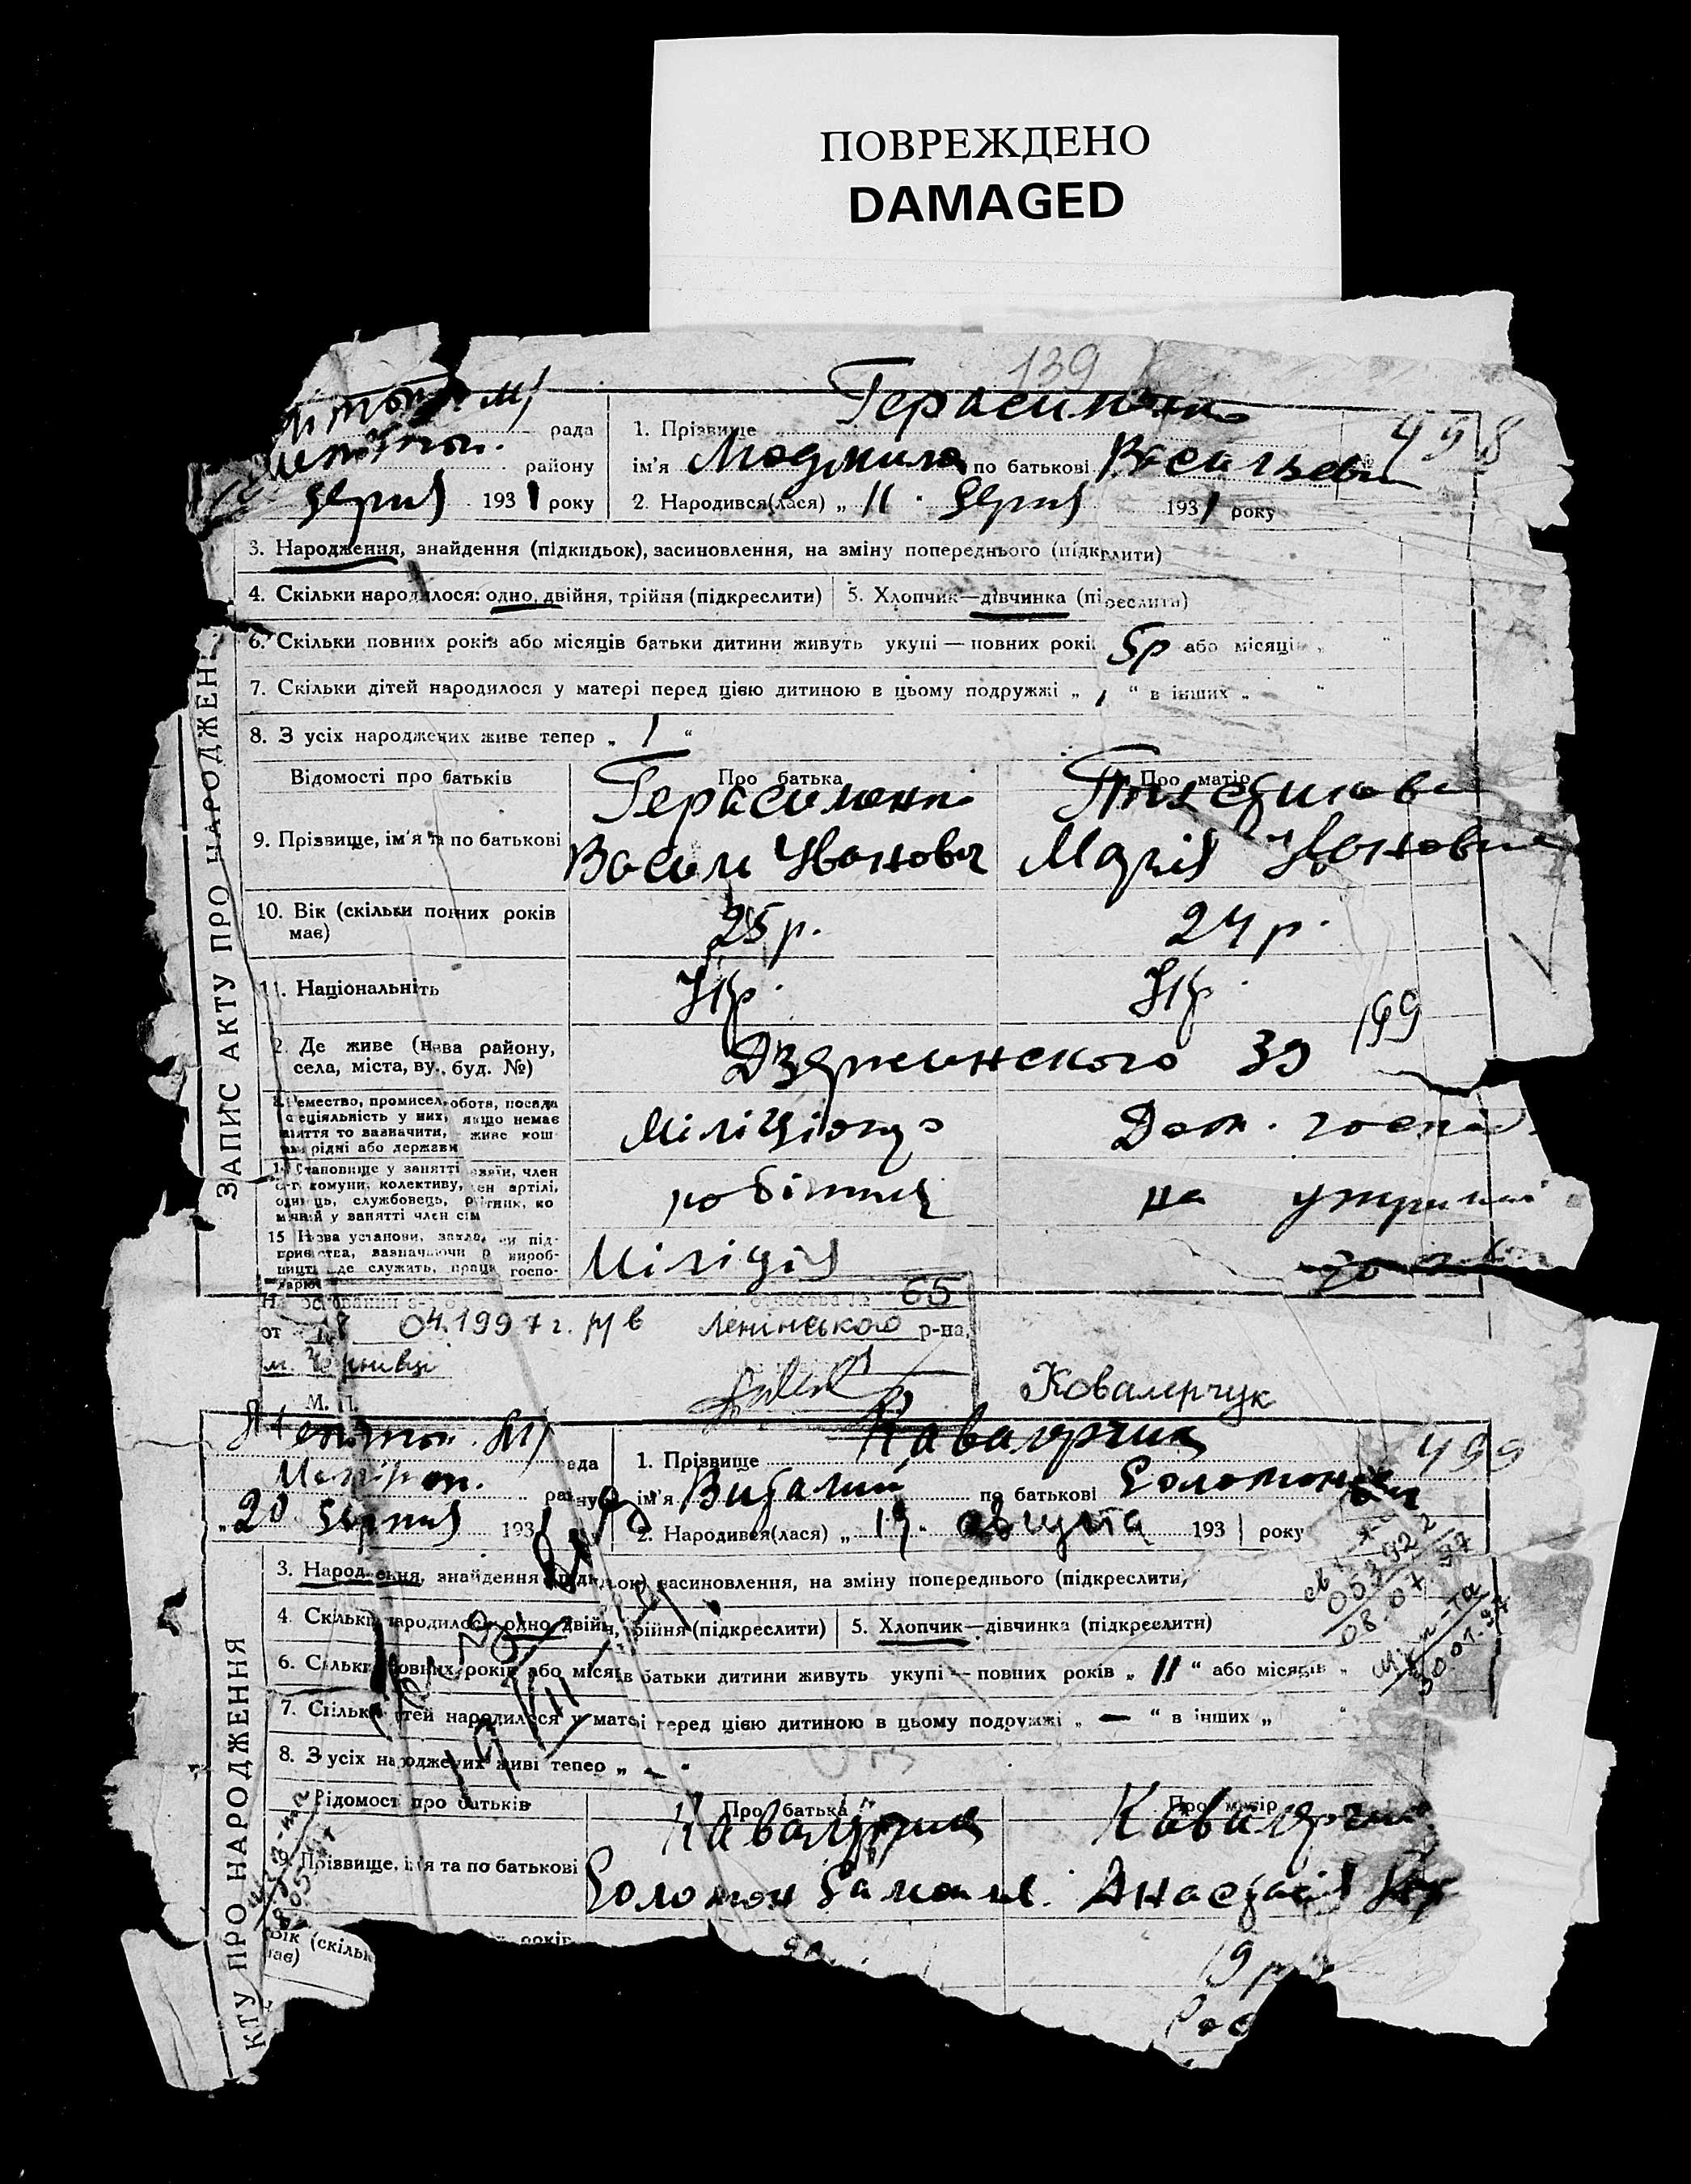 ПОВРЕЖДЕНО
DAMAGED
139
рада
району
серпня 1931 року
1. Прізвище Герасименко
498
ім'я Людмила по батькові Васильевн
2. Народився(лася) „ 11 " серпня 1931 року
3. Народження, знайдення (підкидьок), засиновлення, на зміну попереднього (підкрслити)
4. Скільки народилося: одно, двійня, трійня (підкреслити)
5. Хлопчик—дівчинка (підкреслити)
6. Скільки повних років або місяців батьки дитини живуть укупі — повних років 5р або місяців „ "
7. Скільки дітей народилося у матері перед цією дитиною в цьому подружжі „ 1 " в інших „ - "
8. З усіх народжених живе тепер „ 1 "
Відомості про батьків
Про батька
Про матір
9. Прізвище, ім'я та по батькові
Герасименко
Василь Іванович
Марія Івановна
10. Вік (скільки повних років має)
25 р.
24 р.
11. Національніть
Укр.
Укр.
2. Де живе (нава району, села, міста, ву., буд. №)
Дзержинского 39
199
Ремество, промисел, робота, посада
спеціяльність у них, якщо немає
заняття то зазначити, живе кош
рідні або держави
Міліціонер
Дом. госпо.
14 Становище у занятті хазяїн, член
с-г. комуни, колективу, член артілі,
одинець, службовець, робітник, ко
мічний у занятті член сім
робітник
на утриманні
15 Назва установи, закладу чи під-
приємства, зазначаючи вироб-
ництв де служить, праця госпо-
Міліція
ЗАПИС АКТУ ПРО НАРОДЖЕН
65
от 18 04.1997 г. в Ленінського р-на,
м. Чернівці
М. П.
Ковалерчук
рада
району
„20 серпня 1931
1. Прізвище Кавалерчик
499
ім'я Виталий по батькові Соломонович
2. Народився(лася) „ 19. августа 1931 року
3. Народження, знайдення (підкидьок), засиновлення, на зміну попереднього (підкреслити)
4. Скільки народилося: одно, двійня, трійня (підкреслити)
5. Хлопчик—дівчинка (підкреслити)
6. Скільки повних років або місяців батьки дитини живуть укупі — повних років „ 11 " або місяців „
7. Скільки дітей народилося у матері перед цією дитиною в цьому подружжі „ — " в інших „ "
8. З усіх народжених живі тепер „ — "
Відомост про батьків
Про батька
Про матір
9. Прізвище, ім'я та по батькові
Кавалерчик
Соломон Самоил.
Кавалерчик
Анастасія
Вік (скільк
має)
років
19 р
КТУ ПРО НАРОДЖЕННЯ
053922
08.07.97
30 01.97